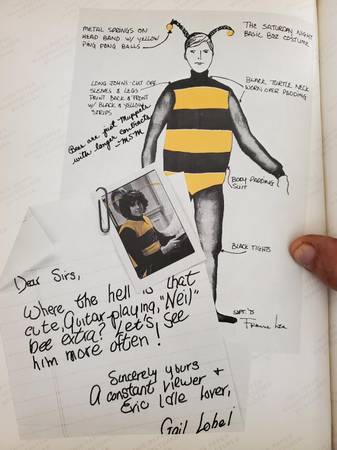 METAL SPRINGS ON
HEAD BAND W/ YELLOW
PING PONG BALLS
THE SATURDAY NIGHT
BASIC BEE COSTUME
LONG JOHNS - CUT OFF
SLEEVES & LEGS
PRINT BACK & FRONT
W/ BLACK & YELLOW
STRIPS
BLACK TURTLE NECK
WORN OVER PADDING
Bees are just Muppets
with longer contracts
- MSM
BODY PADDING
SUIT
BLACK TIGHTS
SEPT. '75
Franne Lee
Dear Sirs,
Where the hell is that
cute, guitar-playing, "Neil"
bee extra? Let's see
him more often!
Sincerely yours
A constant viewer &
Eric Idle Lover,
Gail Lobel